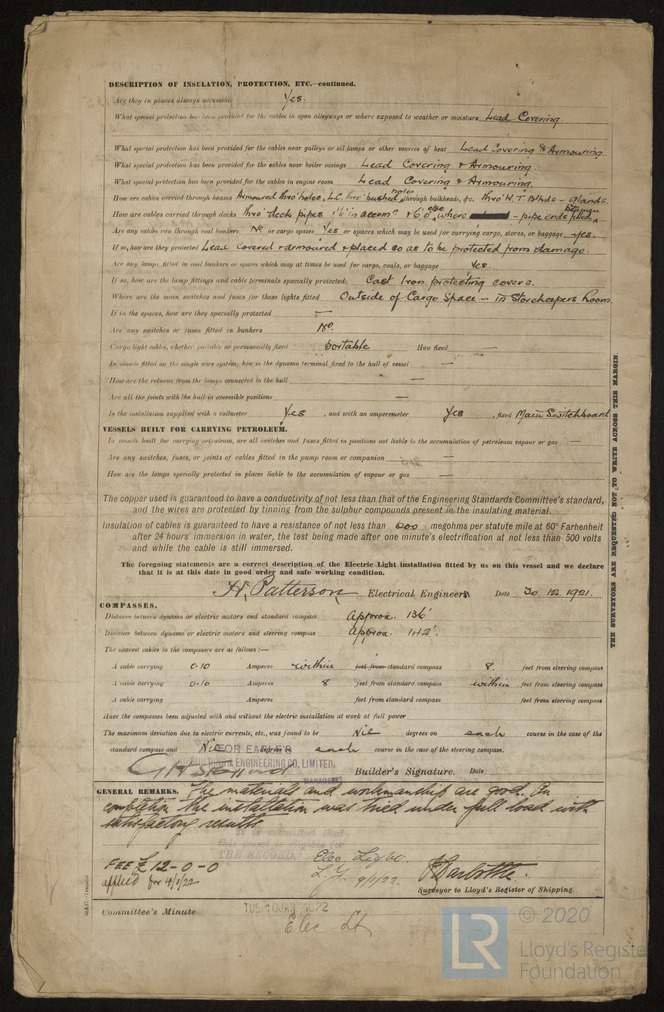 DESCRIPTION OF INSULATION, PROTECTION, ETC.—continued.
Are they in places always accessible Yes.
What special protection has been provided for the cables in open alleyways or where exposed to weather or moisture Lead Covering
What special protection has been provided for the cables near galleys or oil lamps or other sources of heat Lead Covering & Armouring
What special protection has been provided for the cables near boiler casings Lead Covering & Armouring
What special protection has been provided for the cables in engine room Lead Covering & Armouring
How are cables carried through beams Armoured thro' holes, L.C. thro' bushed holes through bulkheads, &c. thro' W.T. Blhds – Glands.
How are cables carried through decks thro' deck pipes 1'6" in accomn & 6.0 where – pipe ends
Are any cables run through coal bunkers No or cargo spaces Yes or spaces which may be used for carrying cargo, stores, or baggage yes.
If so, how are they protected Lead covered & armoured & placed so as to be protected from damage.
Are any lamps fitted in coal bunkers or spaces which may at times be used for cargo, coals, or baggage Yes.
If so, how are the lamp fittings and cable terminals specially protected Cast Iron protecting covers.
Where are the main switches and fuses for these lights fitted Outside of Cargo Space – in Storekeepers Room
If in the spaces, how are they specially protected —
Are any switches or fuses fitted in bunkers No.
Cargo light cables, whether portable or permanently fixed Portable How fixed —
In vessels fitted on the single wire system, how is the dynamo terminal fixed to the hull of vessel —
How are the returns from the lamps connected to the hull —
Are all the joints with the hull in accessible positions —
Is the installation supplied with a voltmeter Yes , and with an amperemeter Yes , fixed Main Switchboard
VESSELS BUILT FOR CARRYING PETROLEUM.
In vessels built for carrying petroleum, are all switches and fuses fitted in positions not liable to the accumulation of petroleum vapour or gas —
Are any switches, fuses, or joints of cables fitted in the pump room or companion —
How are the lamps specially protected in places liable to the accumulation of vapour or gas —
The copper used is guaranteed to have a conductivity of not less than that of the Engineering Standards Committee's standard,
and the wires are protected by tinning from the sulphur compounds present in the insulating material.
Insulation of cables is guaranteed to have a resistance of not less than 600 megohms per statute mile at 60° Farhenheit
after 24 hours' immersion in water, the test being made after one minute's electrification at not less than 500 volts
and while the cable is still immersed.
The foregoing statements are a correct description of the Electric Light installation fitted by us on this vessel and we declare
that it is at this date in good order and safe working condition.
H. Patterson Electrical Engineers Date 30.12.1921.
COMPASSES.
Distance between dynamo or electric motors and standard compass Approx. 136'
Distance between dynamo or electric motors and steering compass Approx. 142'.
The nearest cables to the compasses are as follows:—
A cable carrying 0.10 Amperes within feet from standard compass 8. feet from steering compass
A cable carrying 0.10 Amperes 8 feet from standard compass within feet from steering compass
A cable carrying Amperes feet from standard compass feet from steering compass
Have the compasses been adjusted with and without the electric installation at work at full power
The maximum deviation due to electric currents, etc., was found to be Nil degrees on each course in the case of the
standard compass and Nil degrees on each course in the case of the steering compass.
FOR EARLE'S
SHIPBUILDING & ENGINEERING CO., LIMITED.
MANAGER
Builder's Signature. Date
GENERAL REMARKS. The materials and workmanship are good. On
completion the installation was tried under full load with
satisfactory results
It is submitted that
this vessel is eligible for
THE RECORD
Elec Light.
L.G. 9/1/22.
FEE £ 12-0-0
applied for 4/1/22
Surveyor to Lloyd's Register of Shipping.
Committee's Minute TUE. 10 JAN. 1922
Elec Lt
THE SURVEYORS ARE REQUESTED NOT TO WRITE ACROSS THIS MARGIN.
LR
© 2020
Lloyd's Register
Foundation